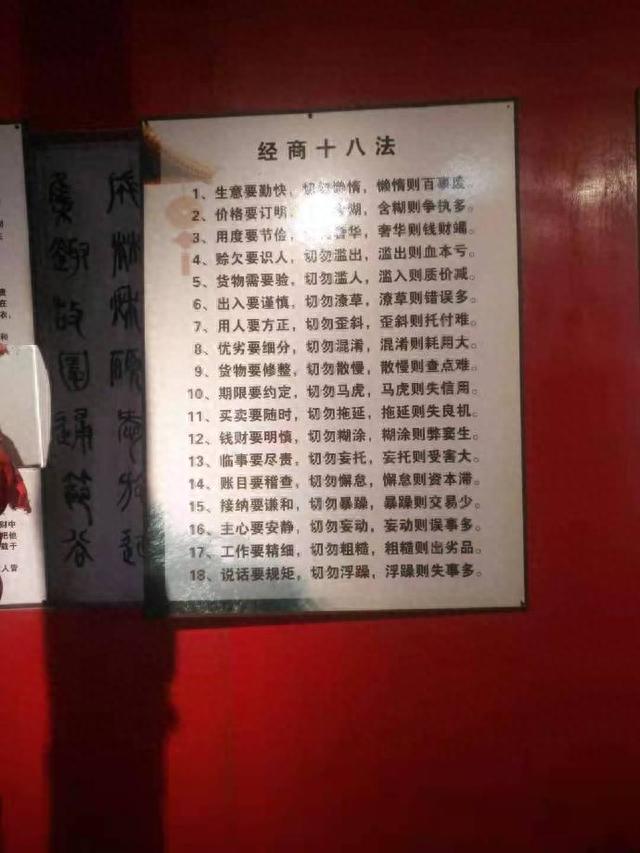 经商十八法
1、生意要勤快，切勿懒惰，懒惰则百事废。
2、价格要订明，糊，含糊则争执多。
3、用度要节俭，奢华，奢华则钱财竭。
4、赊欠要识人，切勿滥出，滥出则血本亏。
5、货物需要验，切勿滥人，滥入则质价减。
6、出入要谨慎，切勿潦草，潦草则错误多。
7、用人要方正，切勿歪斜，歪斜则托付难。
8、优劣要细分，切勿混淆，混淆则耗用大。
9、货物要修整，切勿散慢，散慢则查点难。
10、期限要约定，切勿马虎，马虎则失信用。
11、买卖要随时，切勿拖延，拖延则失良机。
12、钱财要明慎，切勿糊涂，糊涂则弊窦生。
13、临事要尽责，切勿妄托，妄托则受害大。
14、账目要稽查，切勿懈怠，懈怠则资本滞。
15、接纳要谦和，切勿暴躁，暴躁则交易少。
16、主心要安静，切勿妄动，妄动则误事多。
17、工作要精细，切勿粗糙，粗糙则出劣品。
18、说话要规矩，切勿浮躁，浮躁则失事多。